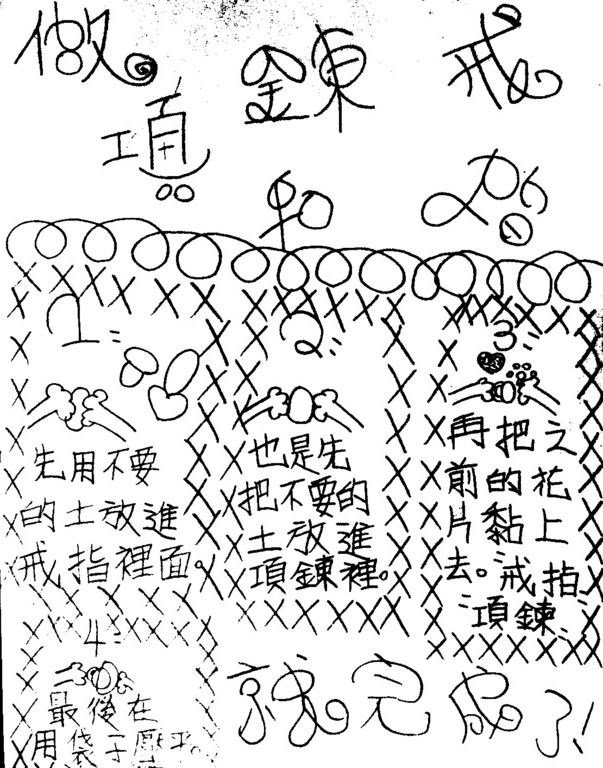 做項鍊和戒指
1:
先用不要
的土放進
戒指裡面。
2:
也是先
把不要的
土放進
項鍊裡。
3:
再把之
前的花
片黏上
去。戒指
項鍊
4:
最後在
用袋子壓平。
就完成了!